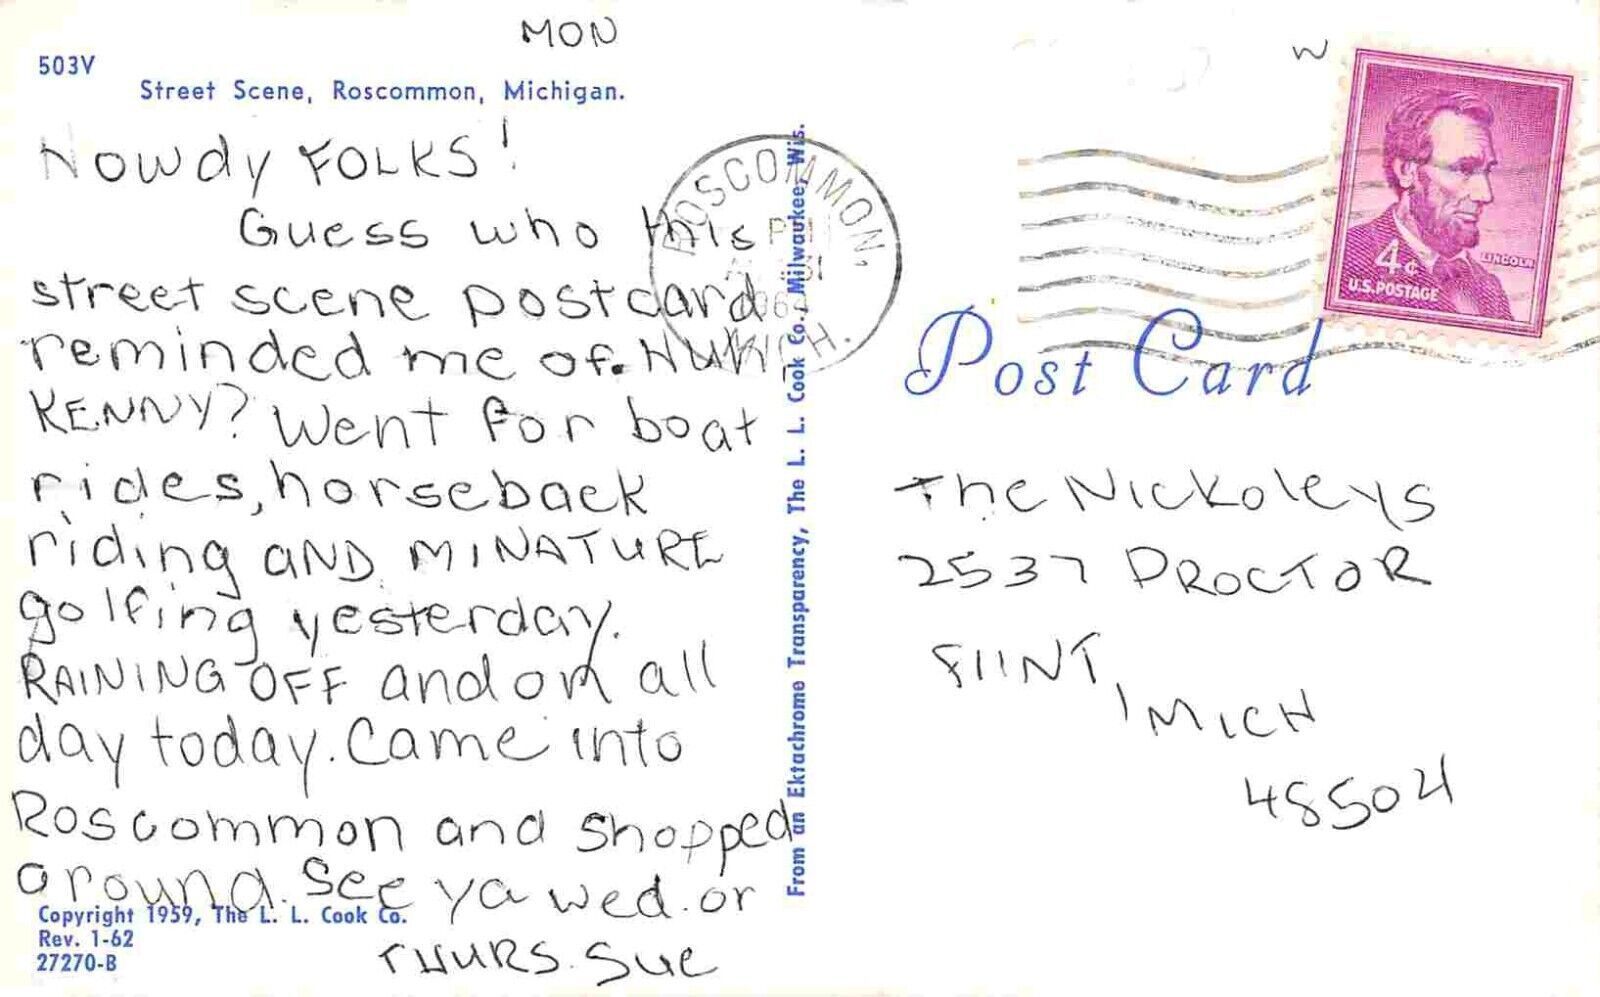 MON
503V
Street Scene, Roscommon, Michigan.
Howdy FOLKS!
Guess who this
street scene postcard
reminded me of. HUH,
KENNY? Went for boat
rides, horseback
riding AND MINATURE
golfing yesterday.
RAINING OFF and on all
day today. Came into
Roscommon and shopped
around. See ya wed. or
THURS. Sue
Copyright 1959, The L. L. Cook Co.
Rev. 1-62
27270-B
From an Ektachrome Transparency, The L. L. Cook Co., Milwaukee, Wis.
ROSCOMMON,
PM
MICH.
W
4¢
LINCOLN
U.S. POSTAGE
Post Card
The Nickoleys
2537 PROCTOR
FlINT,
MICH
48504